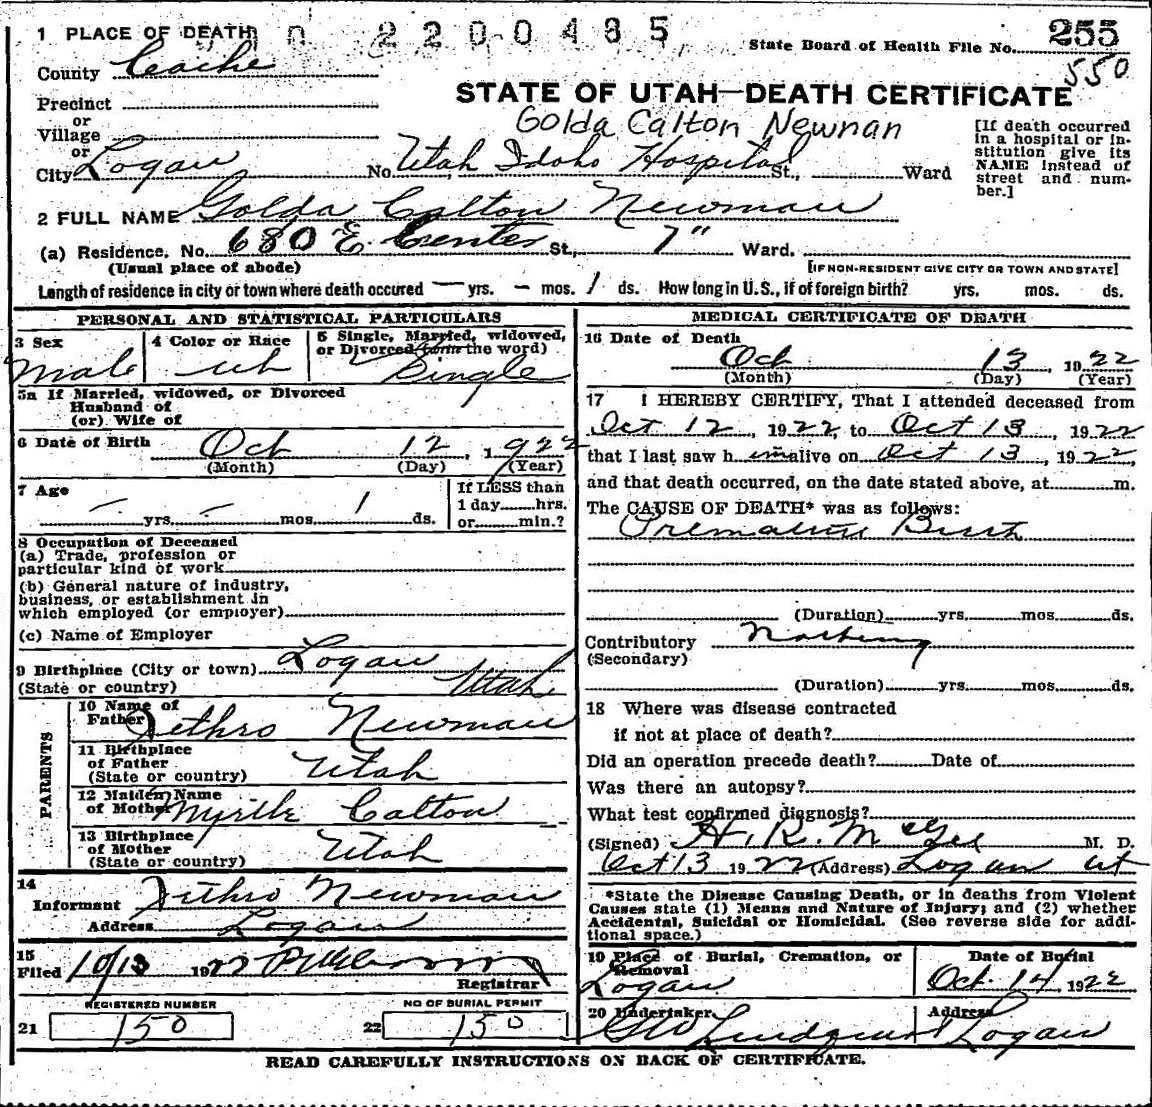 1 PLACE OF DEATH
2200485
State Board of Health File No. 255
County Cache
550
STATE OF UTAH—DEATH CERTIFICATE
Precinct
or
Village
or
City Logan
Golda Calton Newman
No. Utah Idaho Hospital St., Ward
[If death occurred
in a hospital or in-
stitution give its
NAME instead of
street and num-
ber.]
2 FULL NAME Golda Calton Newman
(a) Residence. No. 680 E. Center St., 7" Ward.
(Usual place of abode)
[IF NON-RESIDENT GIVE CITY OR TOWN AND STATE]
Length of residence in city or town where death occured — yrs. – mos. 1 ds. How long in U.S., if of foreign birth? yrs. mos. ds.
PERSONAL AND STATISTICAL PARTICULARS
3 Sex
Male
4 Color or Race
wh
5 Single, Married, widowed,
or Divorced (write the word)
Single
5a If Married, widowed, or Divorced
Husband of
(or) Wife of
6 Date of Birth Oct 12, 1922
(Month) (Day) (Year)
7 Age
— yrs. — mos. 1 ds.
If LESS than
1 day hrs.
or min.?
8 Occupation of Deceased
(a) Trade, profession or
particular kind of work
(b) General nature of industry,
business, or establishment in
which employed (or employer)
(c) Name of Employer
9 Birthplace (City or town) Logan
(State or country) Utah
PARENTS
10 Name of
Father Jethro Newman
11 Birthplace
of Father
(State or country) Utah
12 Maiden Name
of Mother Myrtle Calton
13 Birthplace
of Mother
(State or country) Utah
14
Informant Jethro Newman
Address Logan
15
Filed 10/13 1922
Registrar
REGISTERED NUMBER
21 150
NO OF BURIAL PERMIT
22 150
MEDICAL CERTIFICATE OF DEATH
16 Date of Death
Oct 13, 1922
(Month) (Day) (Year)
17 I HEREBY CERTIFY, That I attended deceased from
Oct 12, 1922, to Oct 13, 1922
that I last saw h im alive on Oct 13, 1922,
and that death occurred, on the date stated above, at m.
The CAUSE OF DEATH* was as follows:
Premature Birth
(Duration) yrs. mos. ds.
Contributory Nothing
(Secondary)
(Duration) yrs. mos. ds.
18 Where was disease contracted
if not at place of death?
Did an operation precede death? Date of
Was there an autopsy?
What test confirmed diagnosis?
(Signed) H. R. McGee M. D.
Oct 13 1922 (Address) Logan Ut
*State the Disease Causing Death, or in deaths from Violent
Causes state (1) Means and Nature of Injury; and (2) whether
Accidental, Suicidal or Homicidal. (See reverse side for addi-
tional space.)
19 Place of Burial, Cremation, or
Removal
Logan
Date of Burial
Oct. 14 1922
20 Undertaker
Lindquist
Address
Logan
READ CAREFULLY INSTRUCTIONS ON BACK OF CERTIFICATE.